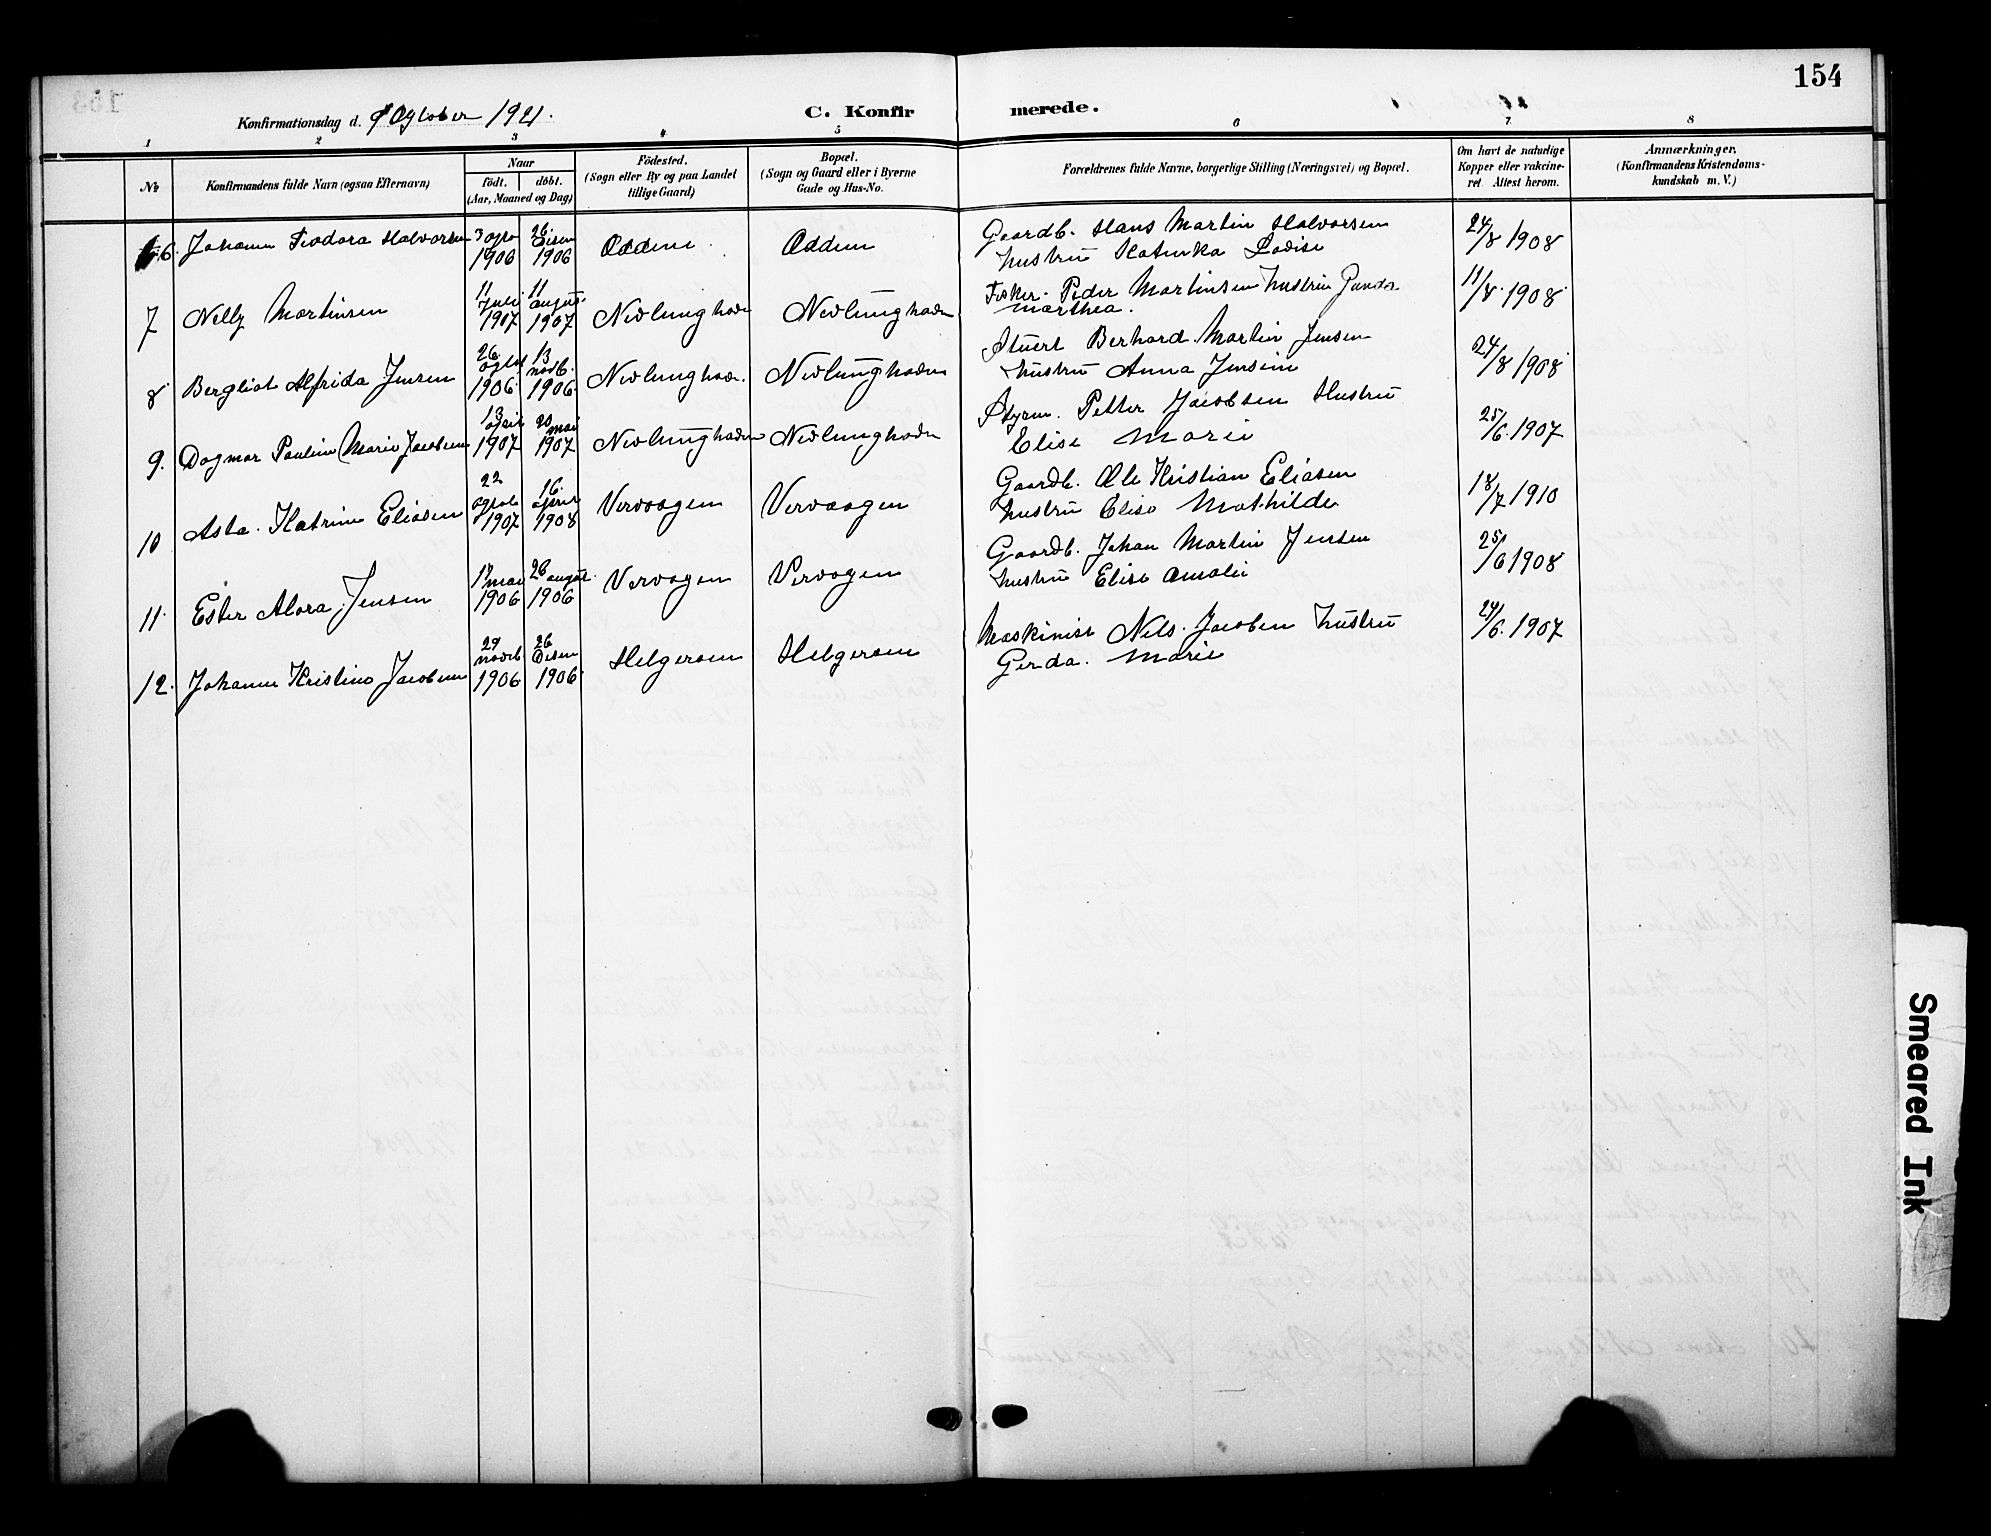 154
Konfirmationsdag d. 9 Oktober 1921.
C. Konfirmerede.
1 2 3 4 5 6 7 8
No
Konfirmandens fulde Navn (ogsaa Efternavn)
Naar
födt. döbt.
(Aar, Maaned og Dag)
Födested.
(Sogn eller By og paa Landet
tillige Gaard)
Bopæl.
(Sogn og Gaard eller i Byerne
Gade og Hus-No.
Forældrenes fulde Navne, borgerlige Stilling (Næringsvei) og Bopæl.
Om havt de naturlige
Kopper eller vakcine-
ret. Attest herom.
Anmærkninger.
(Konfirmandens Kristendoms-
kundskab m. V.)
6. Johanne Teodora Halvorsen 3 1906 26 1906 Oddene Oddene Gaardb. Hans Martin Halvorsen
hustru Katinka Lovise 24/8 1908
7 Nelly Martinsen 11 Juli 1907 11 august 1907 Nevlunghavn Nevlunghavn Fisker. Peder Martinsen hustru
Marthea. 11/8 1908
8 Bergliot Alfrida Jensen 26 1906 13 novb. 1906 Nevlunghavn. Nevlunghavn Stuert Berhard Martin Jensen
hustru Anna Jensine 24/8 1908
9. Dagmar Pauline Marie Jacobsen 13 april 1907 20 mai 1907 Nevlunghavn Nevlunghavn Styrm. Petter Jacobsen Hustru
Elise Marie 25/6. 1907
10 Asta. Katrine Eliasen 22 1907 16. april 1908 Vervaagen Vervaagen Gaardb. Ole Kristian Eliasen
hustru Elise Mathilde 18/7 1910
11. Ester Alora Jensen 17 mai 1906 26 august. 1906 Vervagen Vervagen Gaardb. Johan Martin Jensen
hustru Elise Amalie 25/6 1908
12. Johanne Kristine Jacobsen 29 novb 1906 26 1906 Helgeroen Helgeroen Maskinist Nils. Jacobsen hustru
Gerda. Marie 24/6. 1907
Smeared Ink